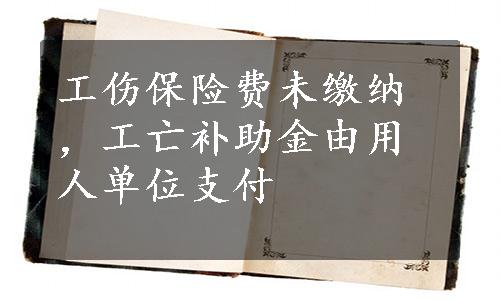 工伤保险费未缴纳
，工亡补助金由用
人单位支付